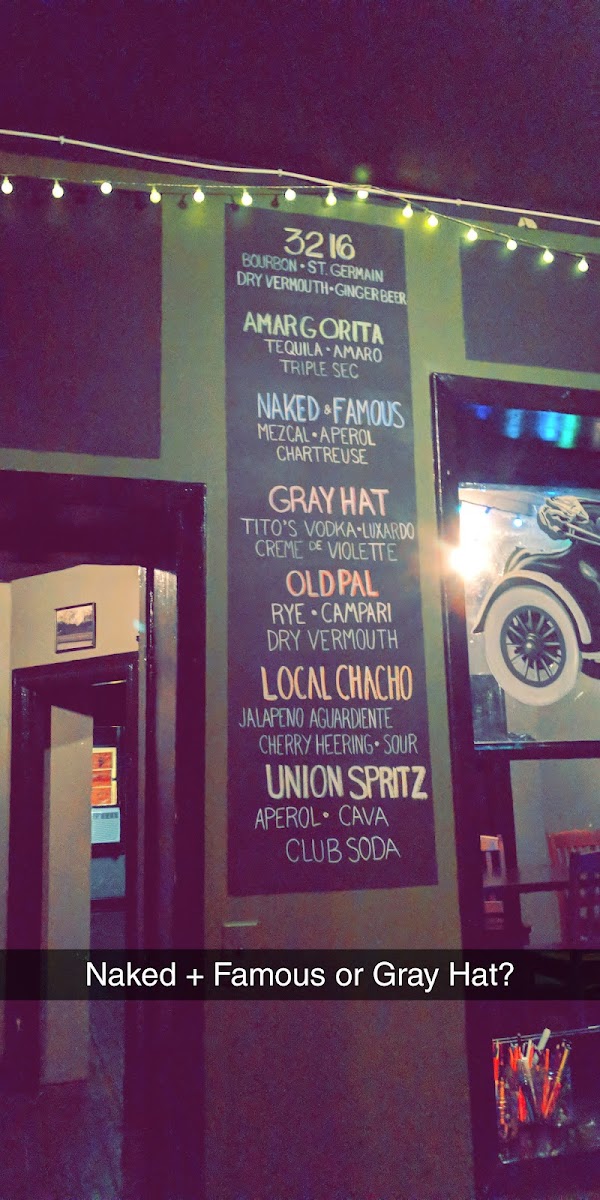 3216
BOURBON • ST. GERMAIN
DRY VERMOUTH • GINGER BEER
AMARGORITA
TEQUILA • AMARO
TRIPLE SEC
NAKED & FAMOUS
MEZCAL • APEROL
CHARTREUSE
GRAY HAT
TITO'S VODKA • LUXARDO
CREME DE VIOLETTE
OLD PAL
RYE • CAMPARI
DRY VERMOUTH
LOCAL CHACHO
JALAPENO AGUARDIENTE
CHERRY HEERING • SOUR
UNION SPRITZ
APEROL • CAVA
CLUB SODA
Naked + Famous or Gray Hat?